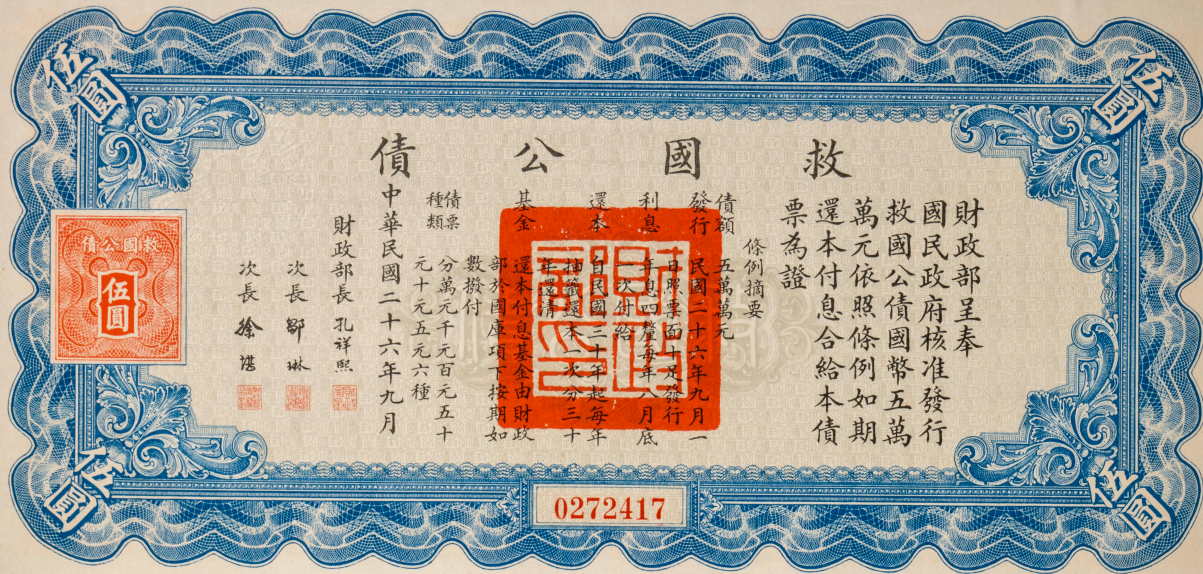 救國公債
財政部呈奉
國民政府核准發行
救國公債國幣五萬
萬元依照條例如期
還本付息合給本債
票為證
條例摘要
債額 五萬萬元
發行 民國二十六年九月一
日照票面十足發行
利息 年息四釐每年八月底
一次付給
還本 自民國三十年起每年
抽籤還本一次分三十
年還清
基金 還本付息基金由財政
部於國庫項下按期如
數撥付
債票種類 分萬元千元百元五十
元十元五元六種
中華民國二十六年九月
財政部長 孔祥熙
次長 鄒琳
次長 徐堪
救國公債
伍圓
伍圓
伍圓
伍圓
伍圓
0272417